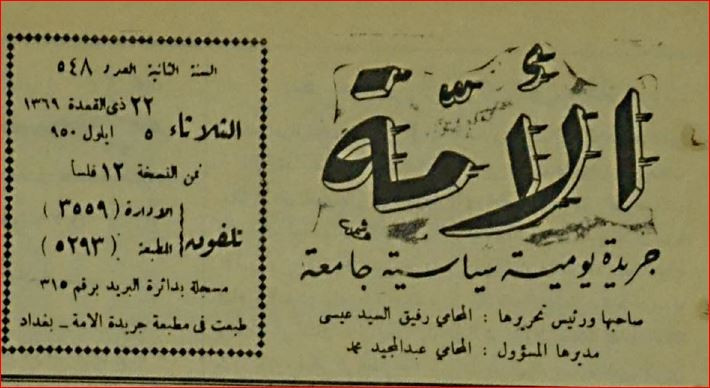 الأمّة
جريدة يومية سياسية جامعة
صاحبها ورئيس تحريرها : المحامي رفيق السيد عيسى
مديرها المسؤول : المحامي عبدالمجيد محمد
السنة الثانية العدد ٥٤٨
٢٢ ذي القعدة ١٣٦٩
الثلاثاء ٥ ايلول ٩٥٠
ثمن النسخة ١٢ فلساً
تلفون الادارة ( ٣٥٥٩ )
المطبعة ( ٥٢٩٣ )
مسجلة بدائرة البريد برقم ٣١٥
طبعت في مطبعة جريدة الامة ـ بغداد